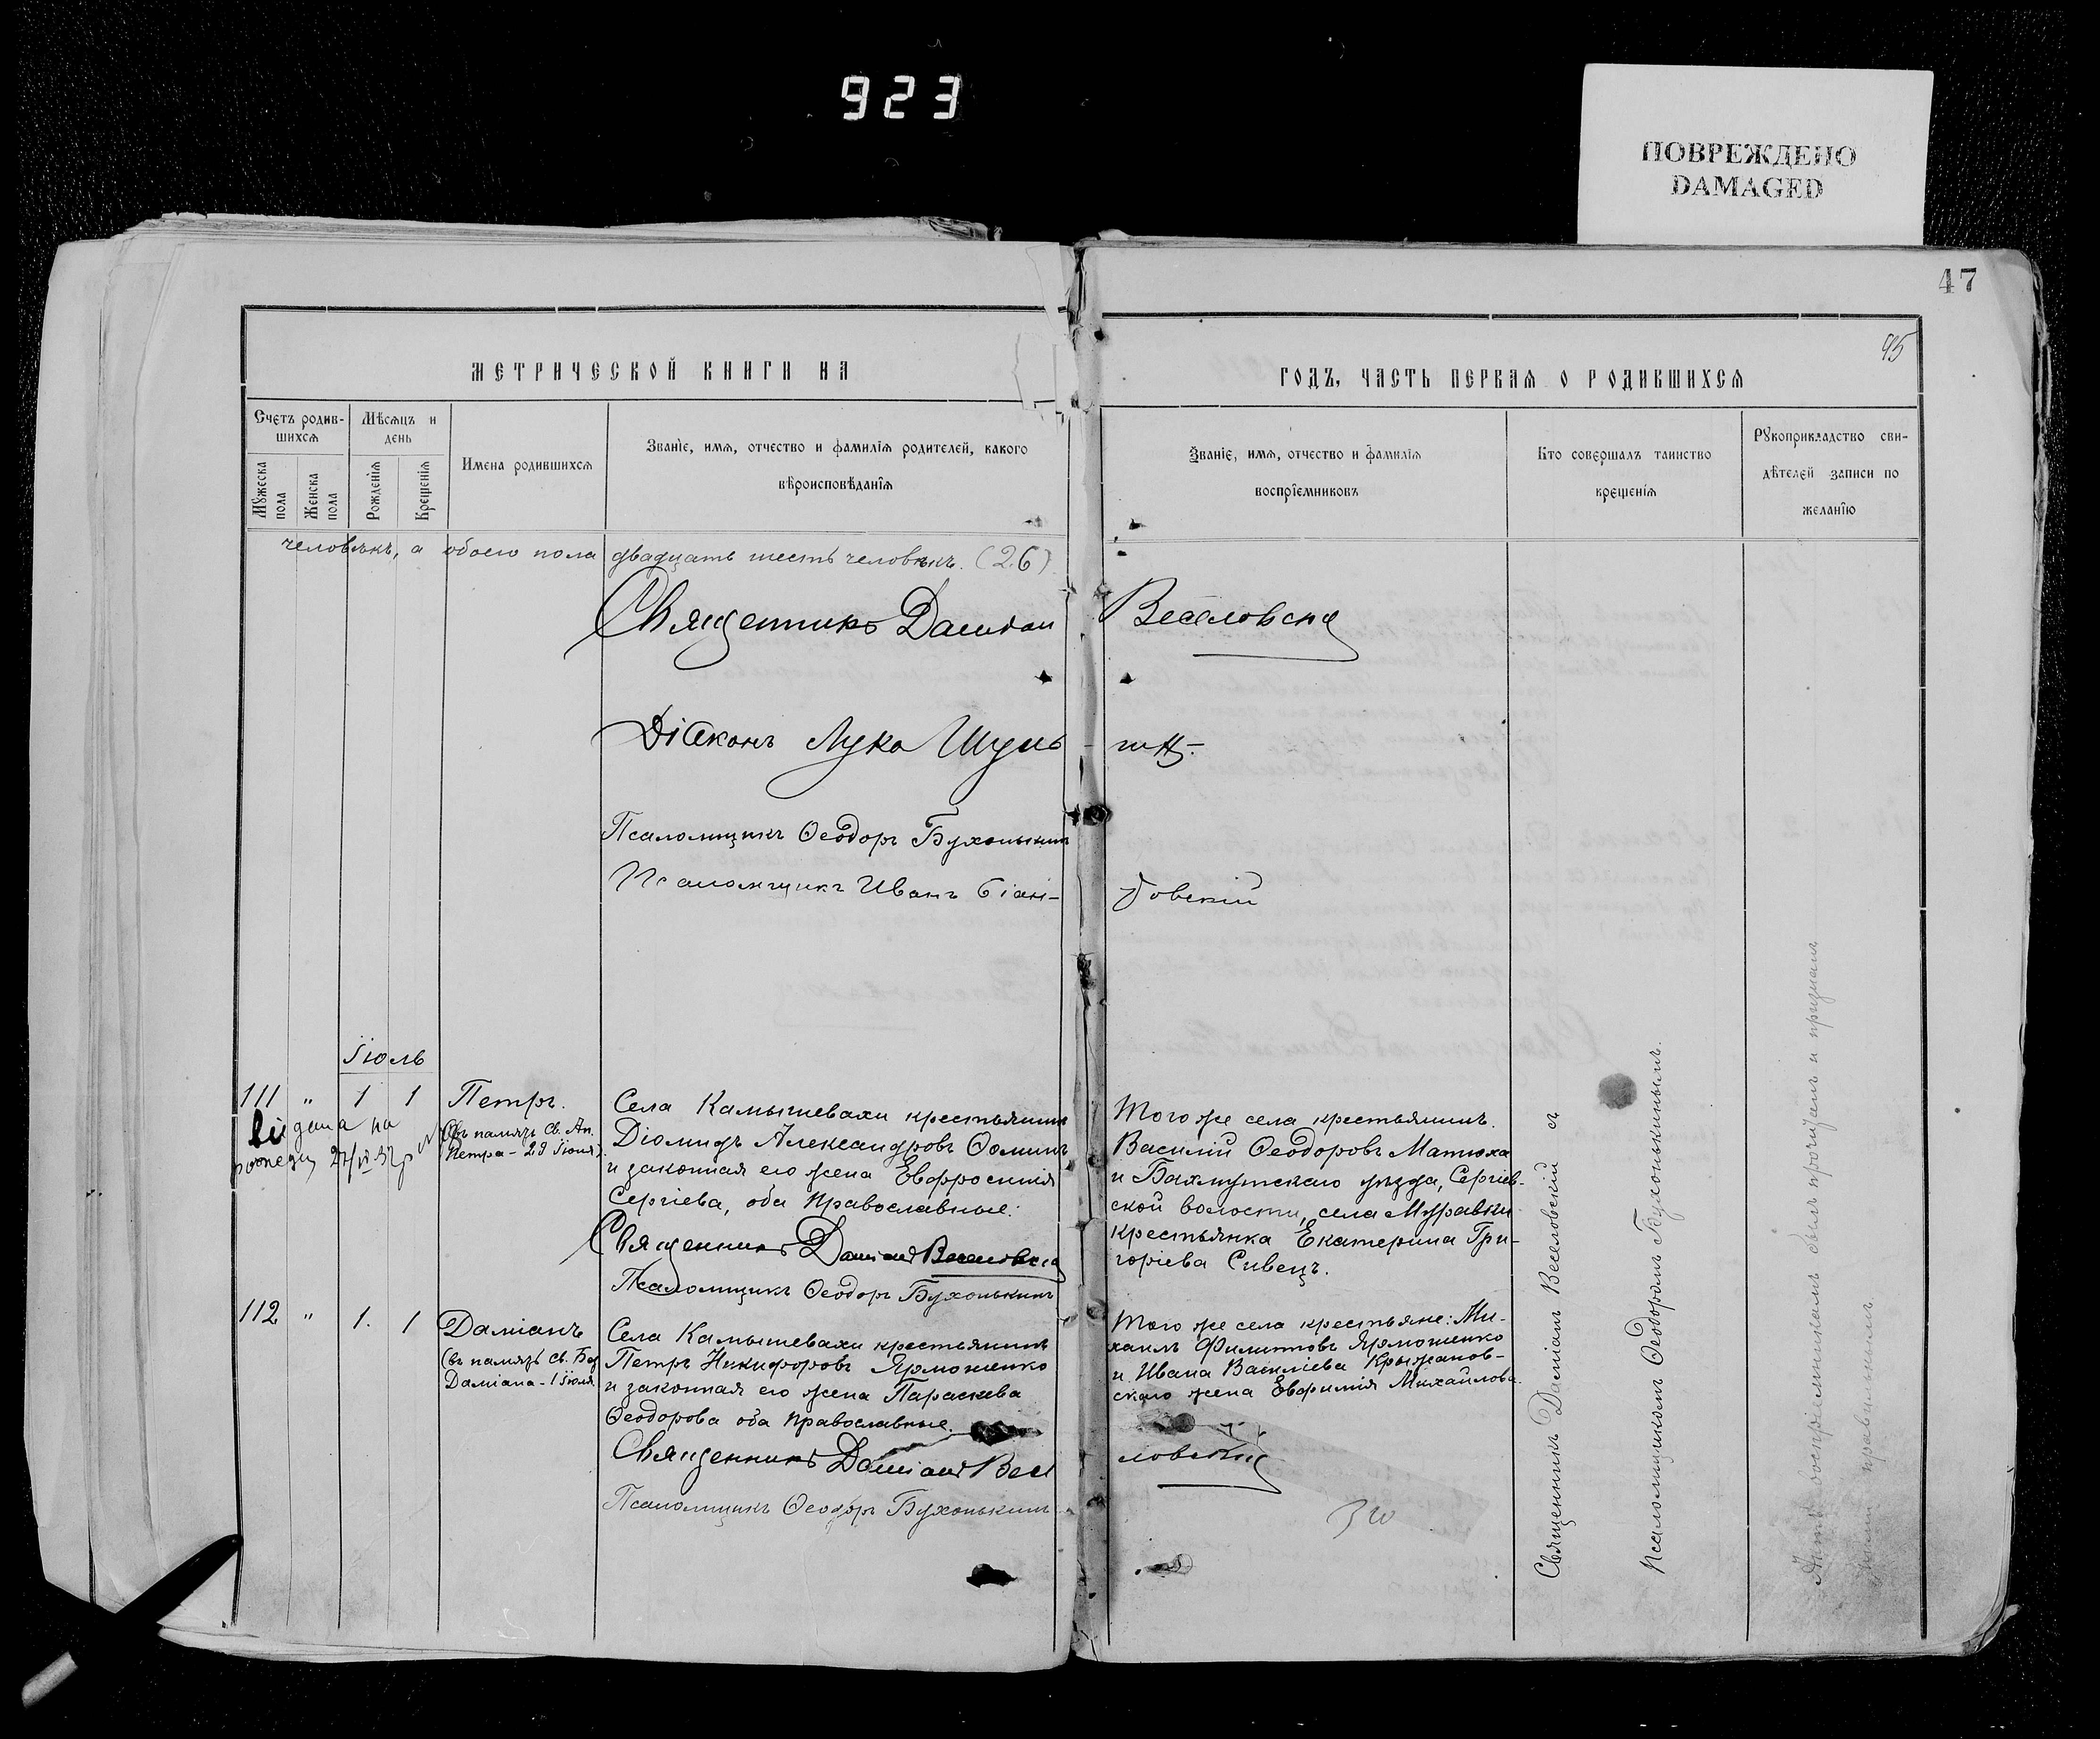 923
ПОВРЕЖДЕНО
DAMAGED
47
95
МЕТРИЧЕСКОЙ КНИГИ НА
ГОДЪ, ЧАСТЬ ПЕРВАЯ О РОДИВШИХСЯ
Счетъ родив-
шихся
Мужеска
пола
Женска
пола
Мѣсяцъ и
день
Рожденія
Крещенія
Имена родившихся
Званіе, имя, отчество и фамилія родителей, какого
вѣроисповѣданія
Званіе, имя, отчество и фамилія
воспріемниковъ
Кто совершалъ таинство
крещенія
Рукоприкладство сви-
дѣтелей записи по
желанію
человѣкъ, а обоего пола двадцать шесть человѣкъ. (26)
Священникъ Даміан Веселовскій
Діаконъ Лука
Псаломщикъ Ѳеодоръ Бухонькинъ
Псаломщикъ Иванъ
Іюль
111 " 1 1
Петръ.
(въ память св. Ап.
Петра - 29 Іюня).
Села Камышевахи крестьянинъ
Діомидъ Александровъ Ѳоминъ
и законная его жена Евфросинія
Сергіева, оба православные.
Священникъ Даміанъ Веселовскій
Псаломщикъ Ѳеодоръ Бухонькинъ
Того же села крестьянинъ
Василій Ѳеодоровъ Матюха
и Бахмутскаго уѣзда, Сергіев-
ской волости, села Муравки
крестьянка Екатерина Гри-
горіева Сивецъ.
112 " 1. 1
Даміанъ
(въ память св. Без
Даміана - 1 іюля
Села Камышевахи крестьянинъ
Петръ Никифоровъ Ярмошенко
и законная его жена Параскева
Ѳеодорова оба православные.
Священникъ Даміанъ Весе
ловскій
Псаломщикъ Ѳеодоръ Бухонькинъ
Того же села крестьяне: Ми-
хаилъ Филиповъ Ярмошенко
и Ивана Василіева Крыжанов-
скаго жена Евфимія Михайлова.
Священникъ Даміанъ Веселовскій съ
Псаломщикомъ Ѳеодоромъ Бухонькинымъ.
воспріемникомъ былъ прочитанъ и признанъ
правильнымъ.